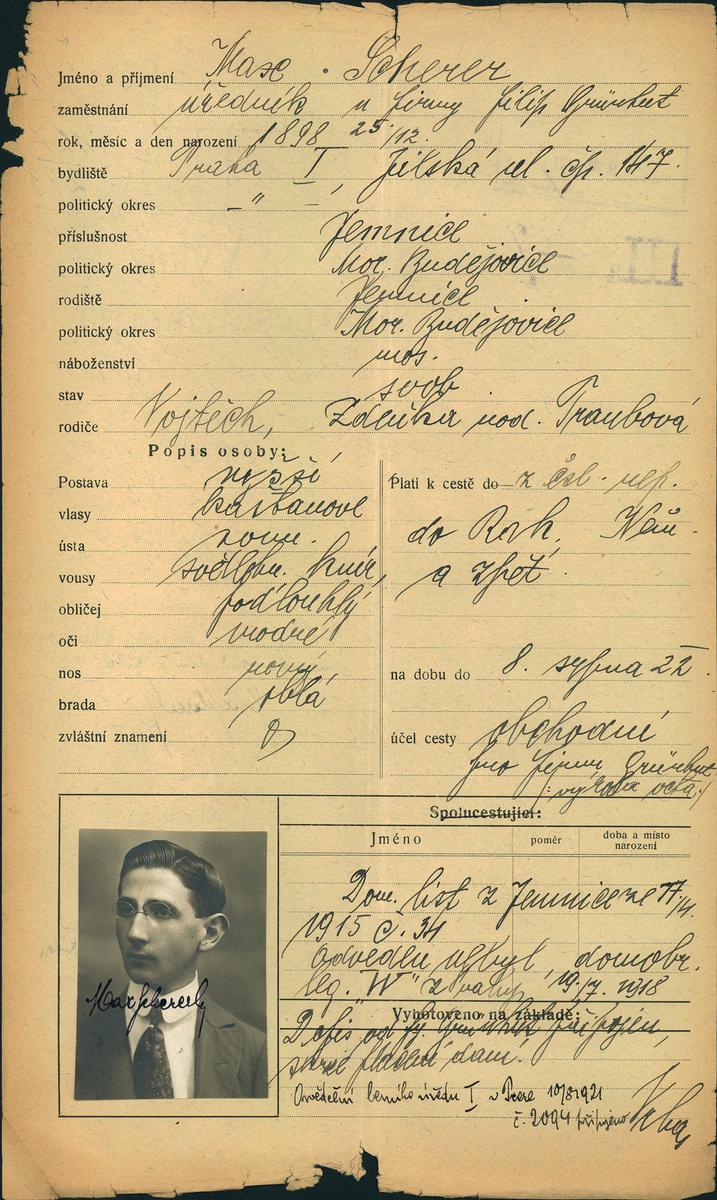 Jméno a příjmení Max Scherer
zaměstnání úředník u firmy Filip Grünhut
rok, měsíc a den narození 1898 25/12.
bydliště Praha I, Jilská ul. čp. 147.
politický okres — " —
příslušnost Jemnice
politický okres Mor. Budějovice
rodiště Jemnice
politický okres Mor. Budějovice
náboženství mos.
stav svob.
rodiče Vojtěch, Zdeňka roz. Traubová
Popis osoby:
Postava vyšší
vlasy kaštanové
ústa norm.
vousy světlohn. knír,
obličej podlouhlý
oči modré
nos
brada oblá
zvláštní znamení
Platí k cestě do z čsl. rep.
do Rak, Něm.
a zpět.
na dobu do 8. srpna 22
účel cesty obchodní
pro firmu Grünhut
(: výroba octa :)
Spolucestující:
Jméno poměr doba a místo narození
Dom. list z Jemnice ze 17/4.
1915 č. 34
odveden nebyl, domobr.
leg. "W" 19./7. 1918
Vyhotoveno na základě:
Dopis od fy. Grünhut připojen,
daní.
Osvědčení berního úřadu I v Praze 10/8 1921
č. 2094 připojeno